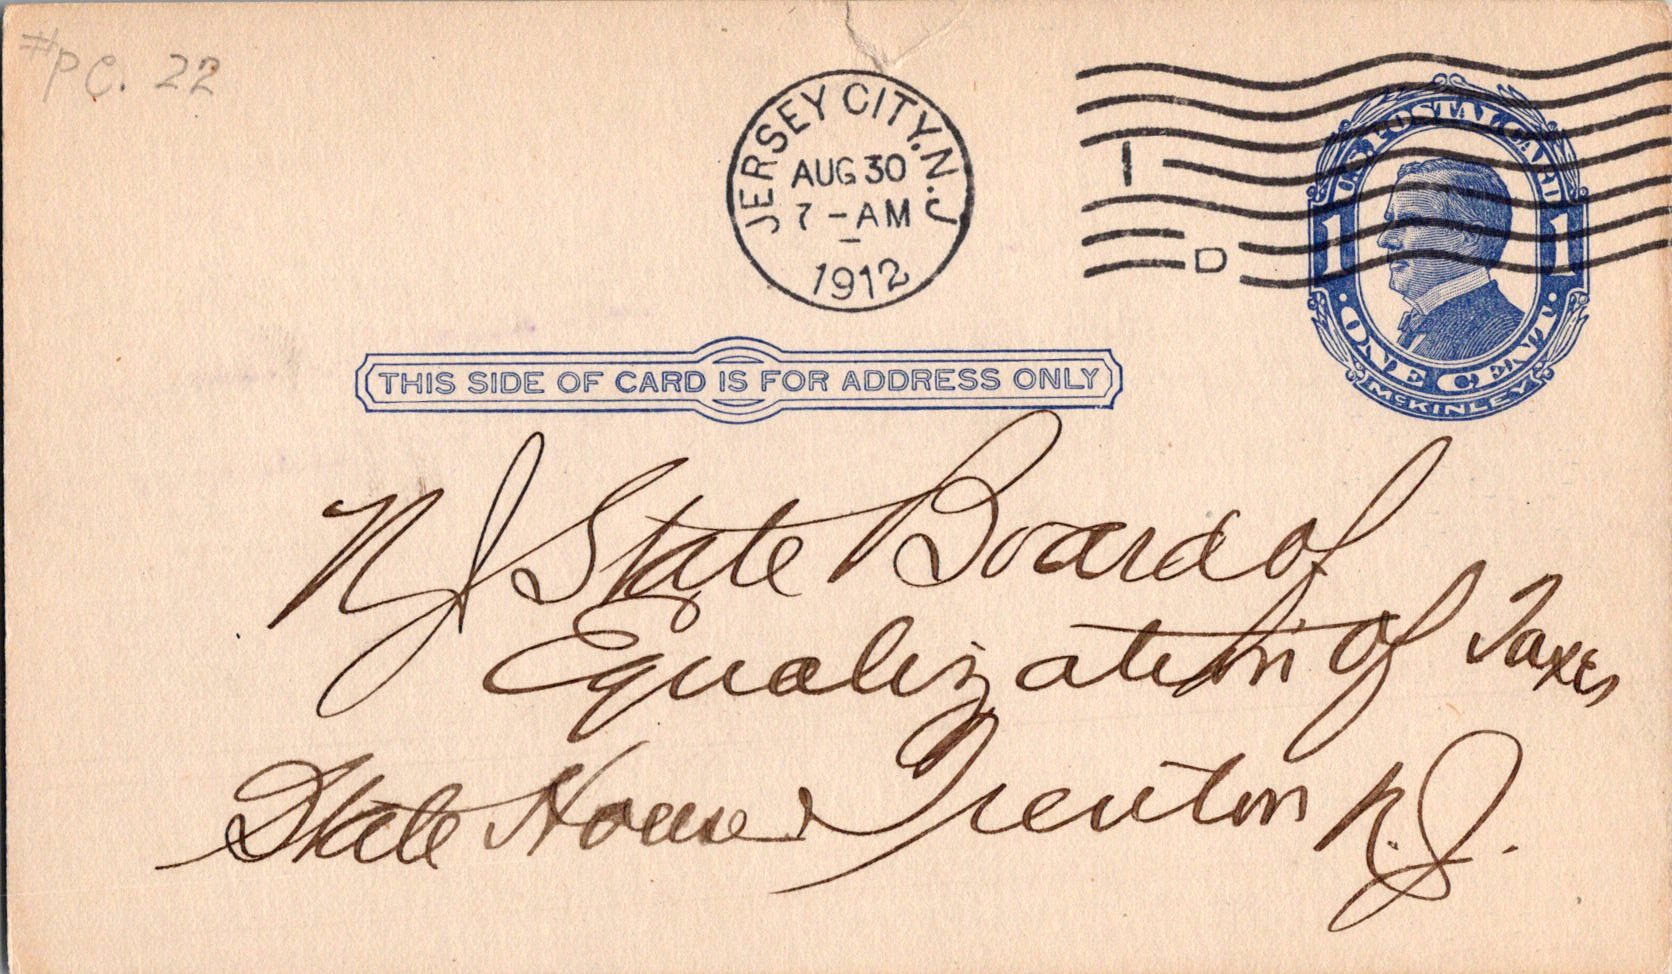 #PC. 22
JERSEY CITY, N.J.
AUG 30
7 - AM
1912
1
D
U.S. POSTAL CARD
1 1
ONE CENT
McKINLEY
THIS SIDE OF CARD IS FOR ADDRESS ONLY
N J State Board of
Equalization of Taxes
State House Trenton N.J.